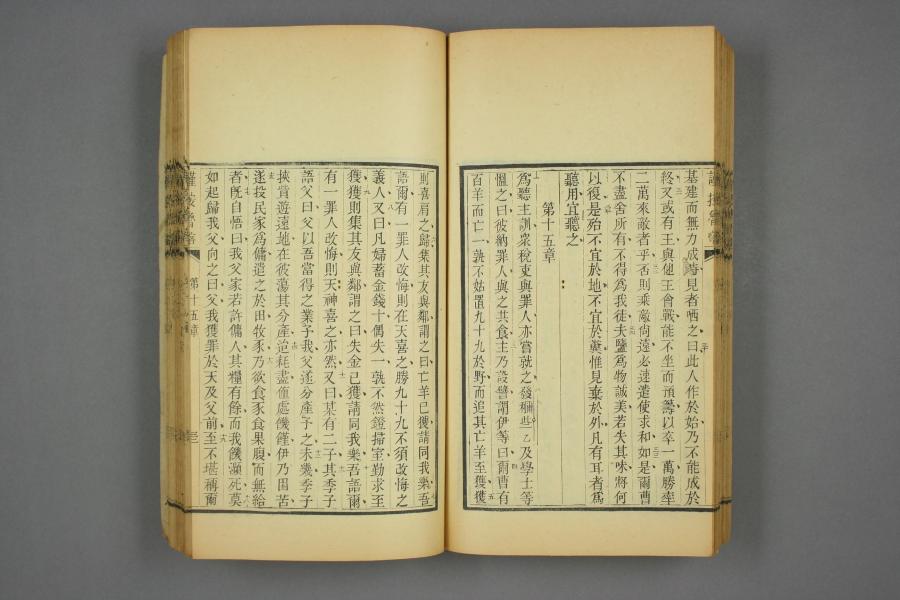 基建而無力成時見者哂之曰此人作於始乃不能成於
終又或有王與他王會戰能不坐而預籌以卒一萬勝率
二萬來敵者乎否則乘敵尙遠必速遣使求和如是爾曹
不盡舍所有不得爲我徒夫鹽爲物誠美若失其味將何
以復是殆不宜於地不宜於糞惟見棄於外凡有耳者爲
聽用宜聽之
第十五章
爲聽主訓衆稅吏與罪人亦嘗就之發唎哂乙及學士等
慍之曰彼納罪人與之共食主乃設譬謂伊等曰爾曹有
百羊而亡一孰不姑置九十九於野而追其亡羊至獲獲
則喜肩之歸集其友與鄰謂之曰亡羊已獲請同我樂吾
語爾有一罪人改悔則在天喜之勝九十九不須改悔之
義人又曰凡婦蓄金錢十偶失一孰不然燈掃室勤求至
獲獲則集其友與鄰謂之曰失金已獲請同我樂吾語爾
有一罪人改悔則天神喜之亦然又曰某有二子其季子
語父曰父以吾當得之業予我父遂分產予之未幾季子
挾貲遊遠地在彼蕩其分產迨耗盡値處饑饉伊乃困苦
遂投民家爲傭遣之於田牧豕乃欲食豕食果腹而無給
者旣自悟曰我父家若許傭人其糧有餘而我饑瀕死莫
如起歸我父向之曰父我獲罪於天及父前至不堪稱爾
第十五章